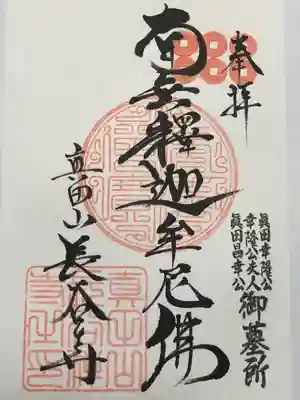 奉拝
眞田幸隆公
幸隆公夫人
眞田昌幸公
御墓所
南無釋迦牟尼佛
真田山
長谷寺